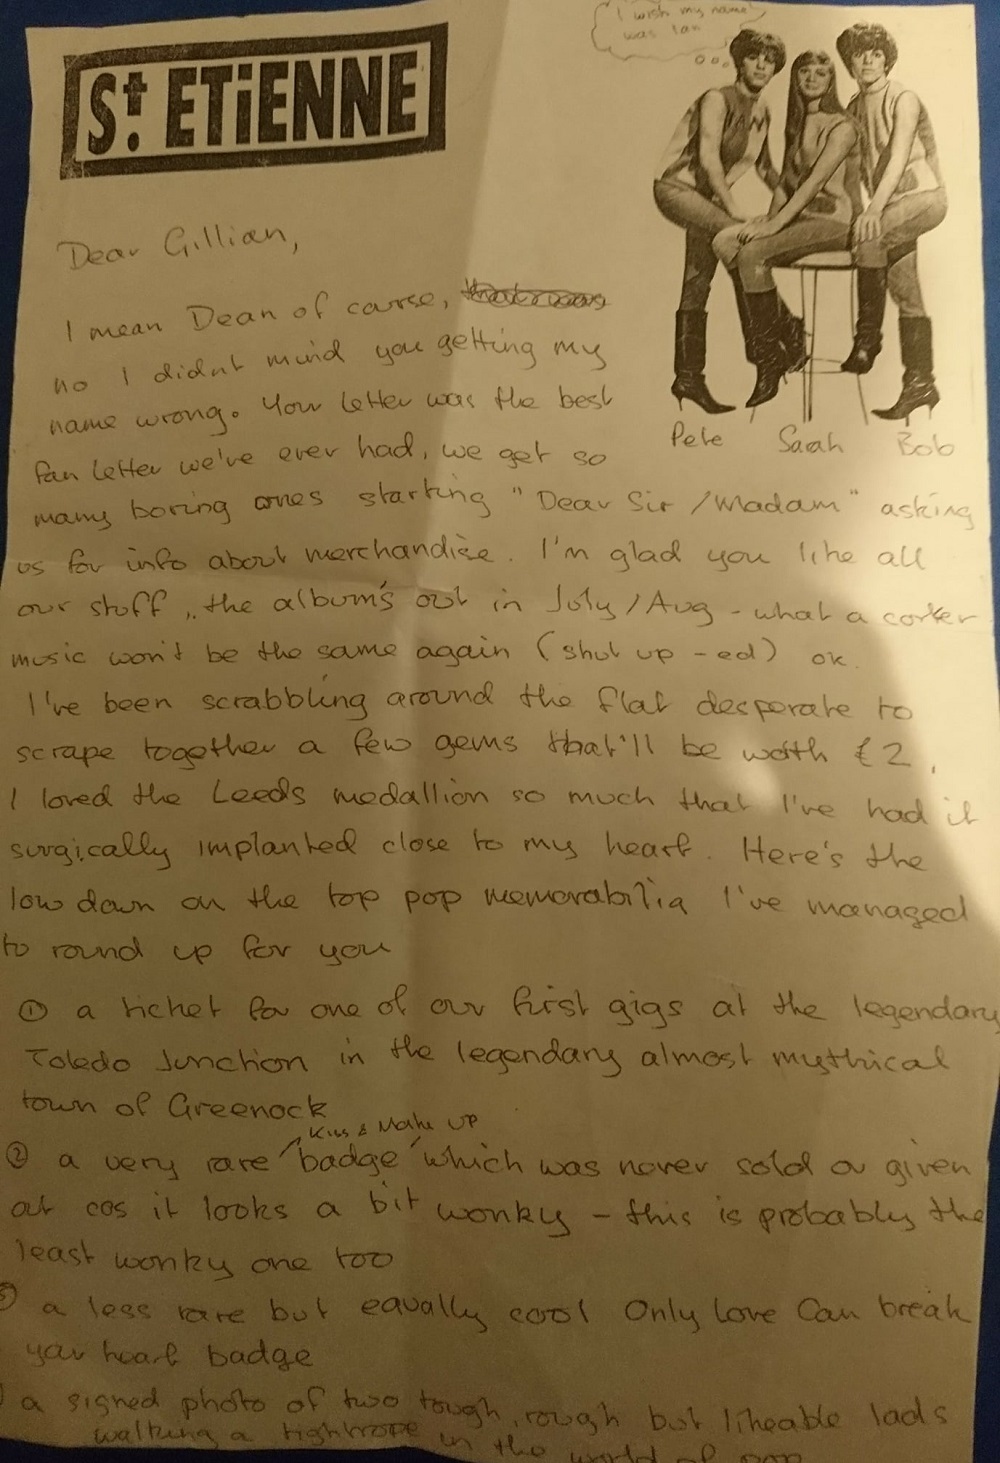 St. ETiENNE
I wish my name
was Ian
Pete Sarah Bob
Dear Gillian,
I mean Dean of course,
no I didn't mind you getting my
name wrong. Your letter was the best
fan letter we've ever had, we get so
many boring ones starting "Dear Sir/Madam" asking
us for info about merchandise. I'm glad you like all
our stuff, the album's out in July/Aug - what a corker
music won't be the same again (shut up - ed) ok.
I've been scrabbling around the flat desperate to
scrape together a few gems that'll be worth £2.
I loved the Leeds medallion so much that I've had it
surgically implanted close to my heart. Here's the
low down on the top pop memorabilia I've managed
to round up for you
① a ticket for one of our first gigs at the legendary
Toledo Junction in the legendary almost mythical
town of Greenock
Kiss & Make Up
② a very rare badge which was never sold or given
out cos it looks a bit wonky - this is probably the
least wonky one too
③ a less rare but equally cool Only Love Can break
your heart badge
a signed photo of two tough, rough but likeable lads
walking a tightrope in the world of pop